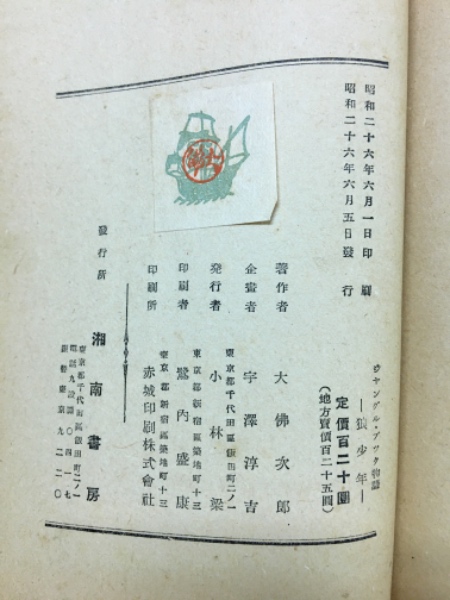 昭和二十六年六月一日印刷
昭和二十六年六月五日發行
ジヤングル・ブツク物語
―狼少年―
定價百二十圓
(地方賣價百二十五圓)
著作者　大佛次郎
企畫者　宇澤淳吉
東京都千代田區飯田町二ノ一
發行者　小林梁
東京都新宿區築地町十三
印刷者　鷲內盛康
東京都新宿區築地町十三
印刷所　赤城印刷株式會社
發行所　湘南書房
東京都千代田區飯田町二ノ一
電話九段